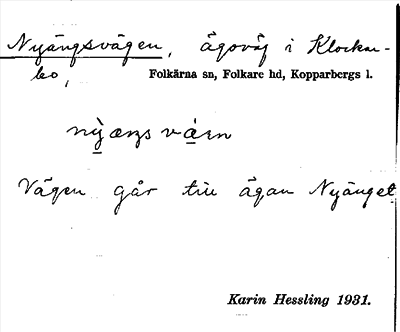 Nyängsvägen, ägoväg i Klockar-
bo,
Folkärna sn, Folkare hd, Kopparbergs l.
nỳæŋs vá̱ɛn
Vägen går till ägan Nyänget
Karin Hessling 1931.